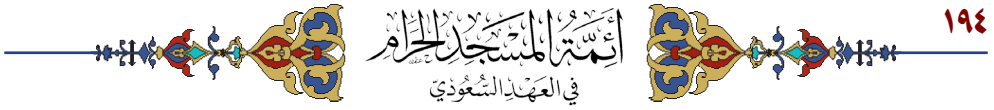 ١٩٤
أَئِمَّةُ المَسْجِدِ الحَرَامِ
فِي العَهْدِ السُّعُودِيّ